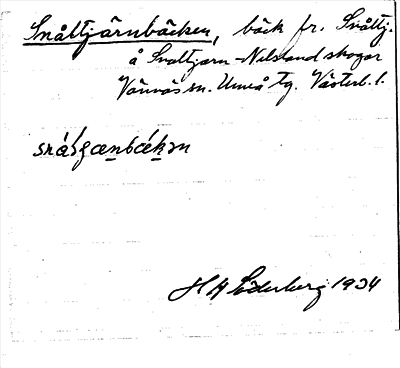 Snåltjärnbäcken, bäck fr. Snåltj.
å Snåltjärn-Nilsand skogar
Vännäs sn. Umeå tg. Västerb. l.
H A Söderberg 1934